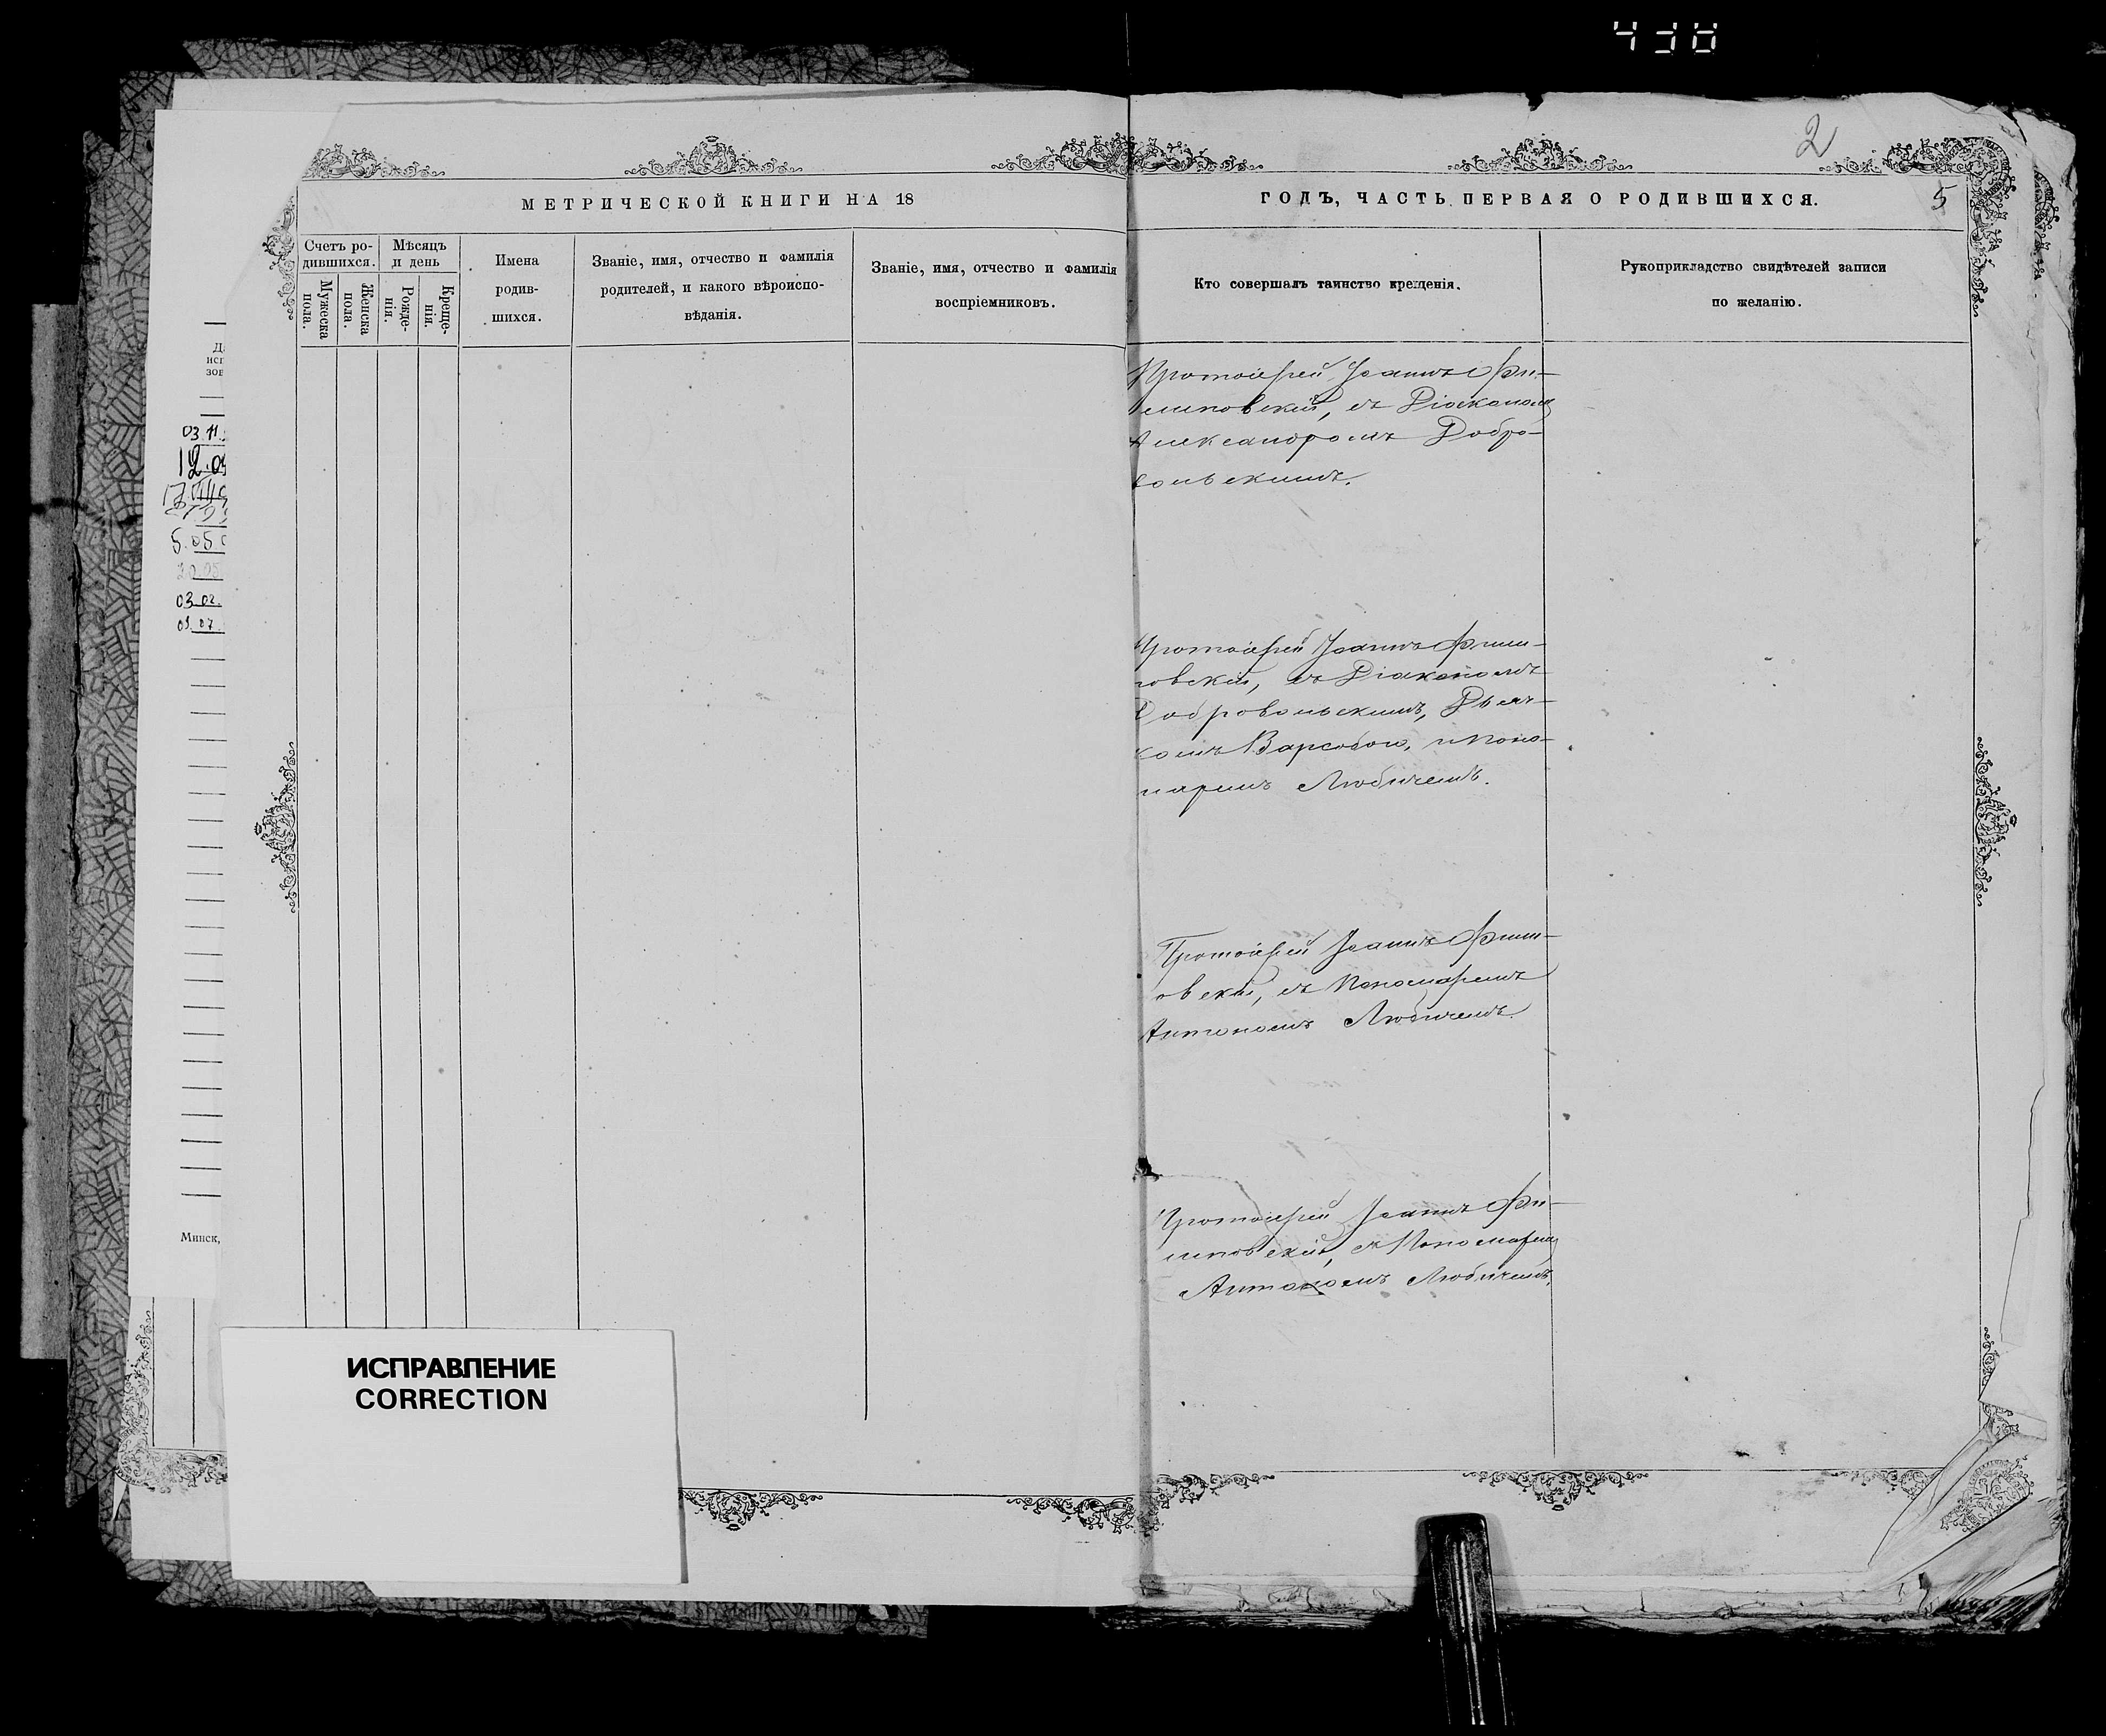 438
2
МЕТРИЧЕСКОЙ КНИГИ НА 18
ГОДЪ, ЧАСТЬ ПЕРВАЯ О РОДИВШИХСЯ.
5
Счетъ ро-
дившихся.
Мужеска
пола.
Женска
пола.
Мѣсяцъ
и день
Рожде-
нія.
Креще-
нія.
Имена
родив-
шихся.
Званіе, имя, отчество и фамилія
родителей, и какого вѣроиспо-
вѣданія.
Званіе, имя, отчество и фамилія
воспріемниковъ.
Кто совершалъ таинство крещенія.
Рукоприкладство свидѣтелей записи
по желанію.
Протоіерей Іоаннъ Фи-
липовскій, съ Діакономъ
Александромъ Добро-
вольскимъ.
Протоіерей Іоаннъ Фили-
повскій, съ Діакономъ
Добровольскимъ, Дьяч-
комъ Варсобою, и Поно-
маремъ Любичемъ.
Протоіерей Іоаннъ Фили-
повскій, съ Пономаремъ
Антономъ Любичемъ.
Протоіерей Іоаннъ Фи-
липовскій, съ Пономаремъ
Антономъ Любичемъ.
Да
исп
зов
03.11
12.04
5.05
20.05
03.02.
03.07.
Минск,
ИСПРАВЛЕНИЕ
CORRECTION